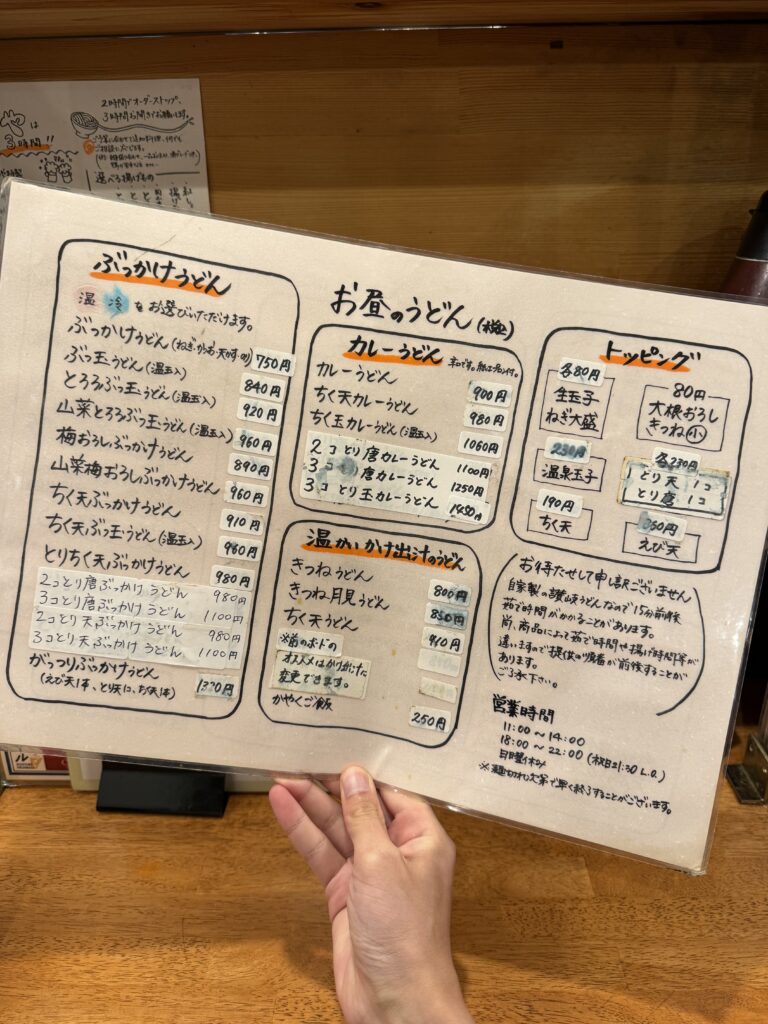 は
3時間!!
2時間でオーダーストップ、
3時間お開きでお願いします。
選べる揚げもの
ぶっかけうどん
温 冷 をお選びいただけます。
ぶっかけうどん(ねぎ・かつお・天かす・のり) 750円
ぶっ玉うどん(温玉入) 840円
とろろぶっ玉うどん(温玉入) 920円
山菜とろろぶっ玉うどん(温玉入) 960円
梅おろしぶっかけうどん 890円
山菜梅おろしぶっかけうどん 960円
ちく天ぶっかけうどん 910円
ちく天ぶっ玉うどん(温玉入) 980円
とりちく天ぶっかけうどん 980円
2コとり唐ぶっかけうどん 980円
3コとり唐ぶっかけうどん 1100円
2コとり天ぶっかけうどん 980円
3コとり天ぶっかけうどん 1100円
がっつりぶっかけうどん 1320円
(えび天1本、とり天1コ、ちく天1本)
お昼のうどん
カレーうどん
辛口です。紙エプロン付。
カレーうどん 900円
ちく天カレーうどん 980円
ちく玉カレーうどん(温玉入) 1060円
2コとり唐カレーうどん 1100円
3コとり唐カレーうどん 1250円
3コとり玉カレーうどん 1450円
温かいかけ出汁のうどん
きつねうどん 800円
きつね月見うどん 850円
ちく天うどん 910円
※前のボードの
オススメはかけ出汁に
変更できます。
かやくご飯 250円
トッピング
各80円
生玉子
ねぎ大盛
80円
大根おろし
きつね小
230円
温泉玉子
各230円
とり天 1コ
とり唐 1コ
190円
ちく天
えび天
お待たせして申し訳ございません
自家製の讃岐うどんなので15分前後
茹で時間がかかることがあります。
尚、商品によって茹で時間や揚げ時間等が
違いますので提供の順番が前後することが
あります。
ご了承下さい。
営業時間
11:00〜14:00
18:00〜22:00(祝日21:30 L.O.)
日曜休み
※麺切れ次第で早く終了することがございます。